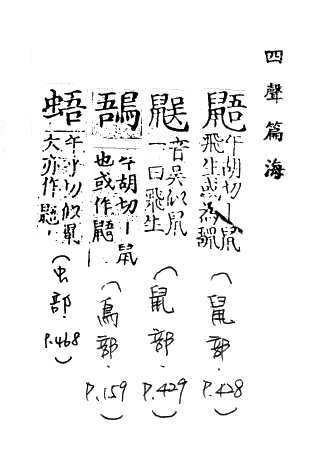 四聲篇海
鼯
午胡切丨鼠
飛生或為
(鼠部.
P.428)
音吳似鼠
一曰飛生
(鼠部.
P.429)
午胡切丨鼠
也或作鼯
(鳥部.
P.159)
蜈
午乎切似鼠
大亦作鼯
(虫部.
P.468)